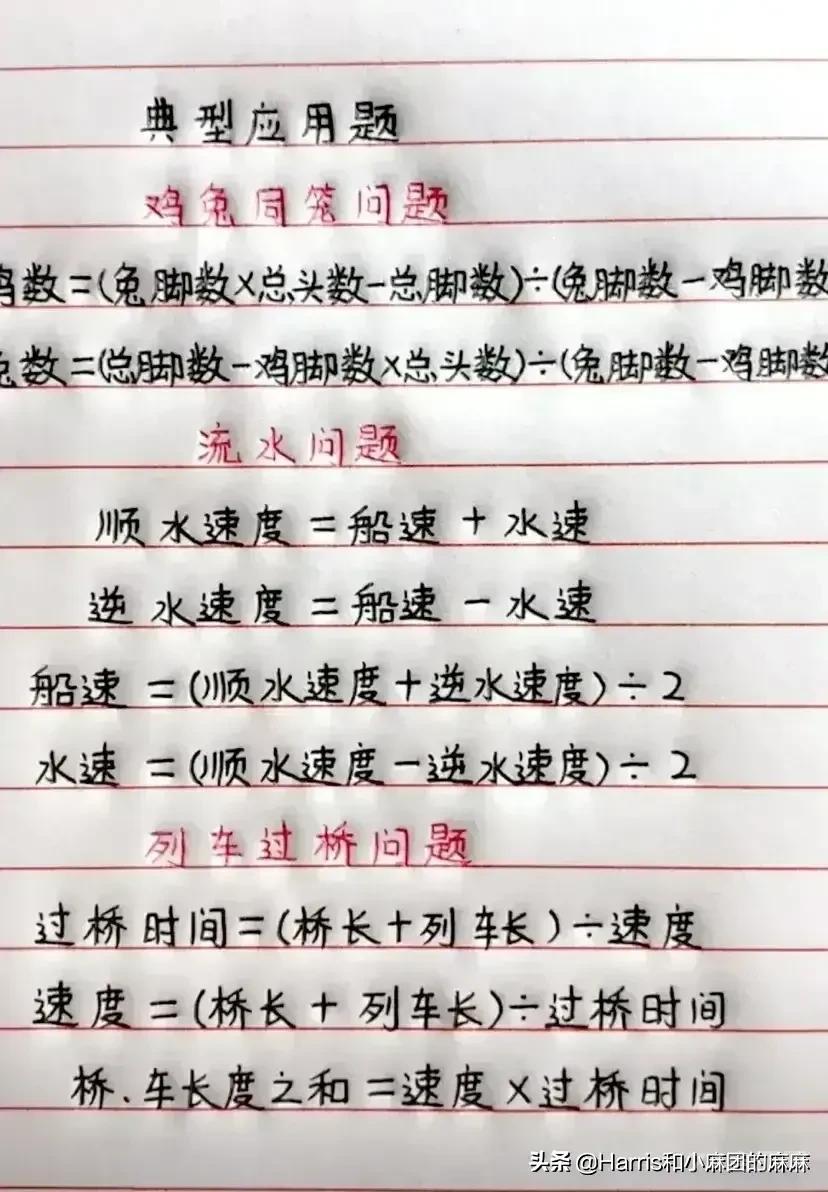 典型应用题
鸡兔同笼问题
鸡数=(兔脚数×总头数-总脚数)÷(兔脚数-鸡脚数
兔数=(总脚数-鸡脚数×总头数)÷(兔脚数-鸡脚数
流水问题
顺水速度=船速+水速
逆水速度=船速-水速
船速=(顺水速度+逆水速度)÷2
水速=(顺水速度-逆水速度)÷2
列车过桥问题
过桥时间=(桥长+列车长)÷速度
速度=(桥长+列车长)÷过桥时间
桥、车长度之和=速度×过桥时间
头条 @Harris和小麻团的麻麻